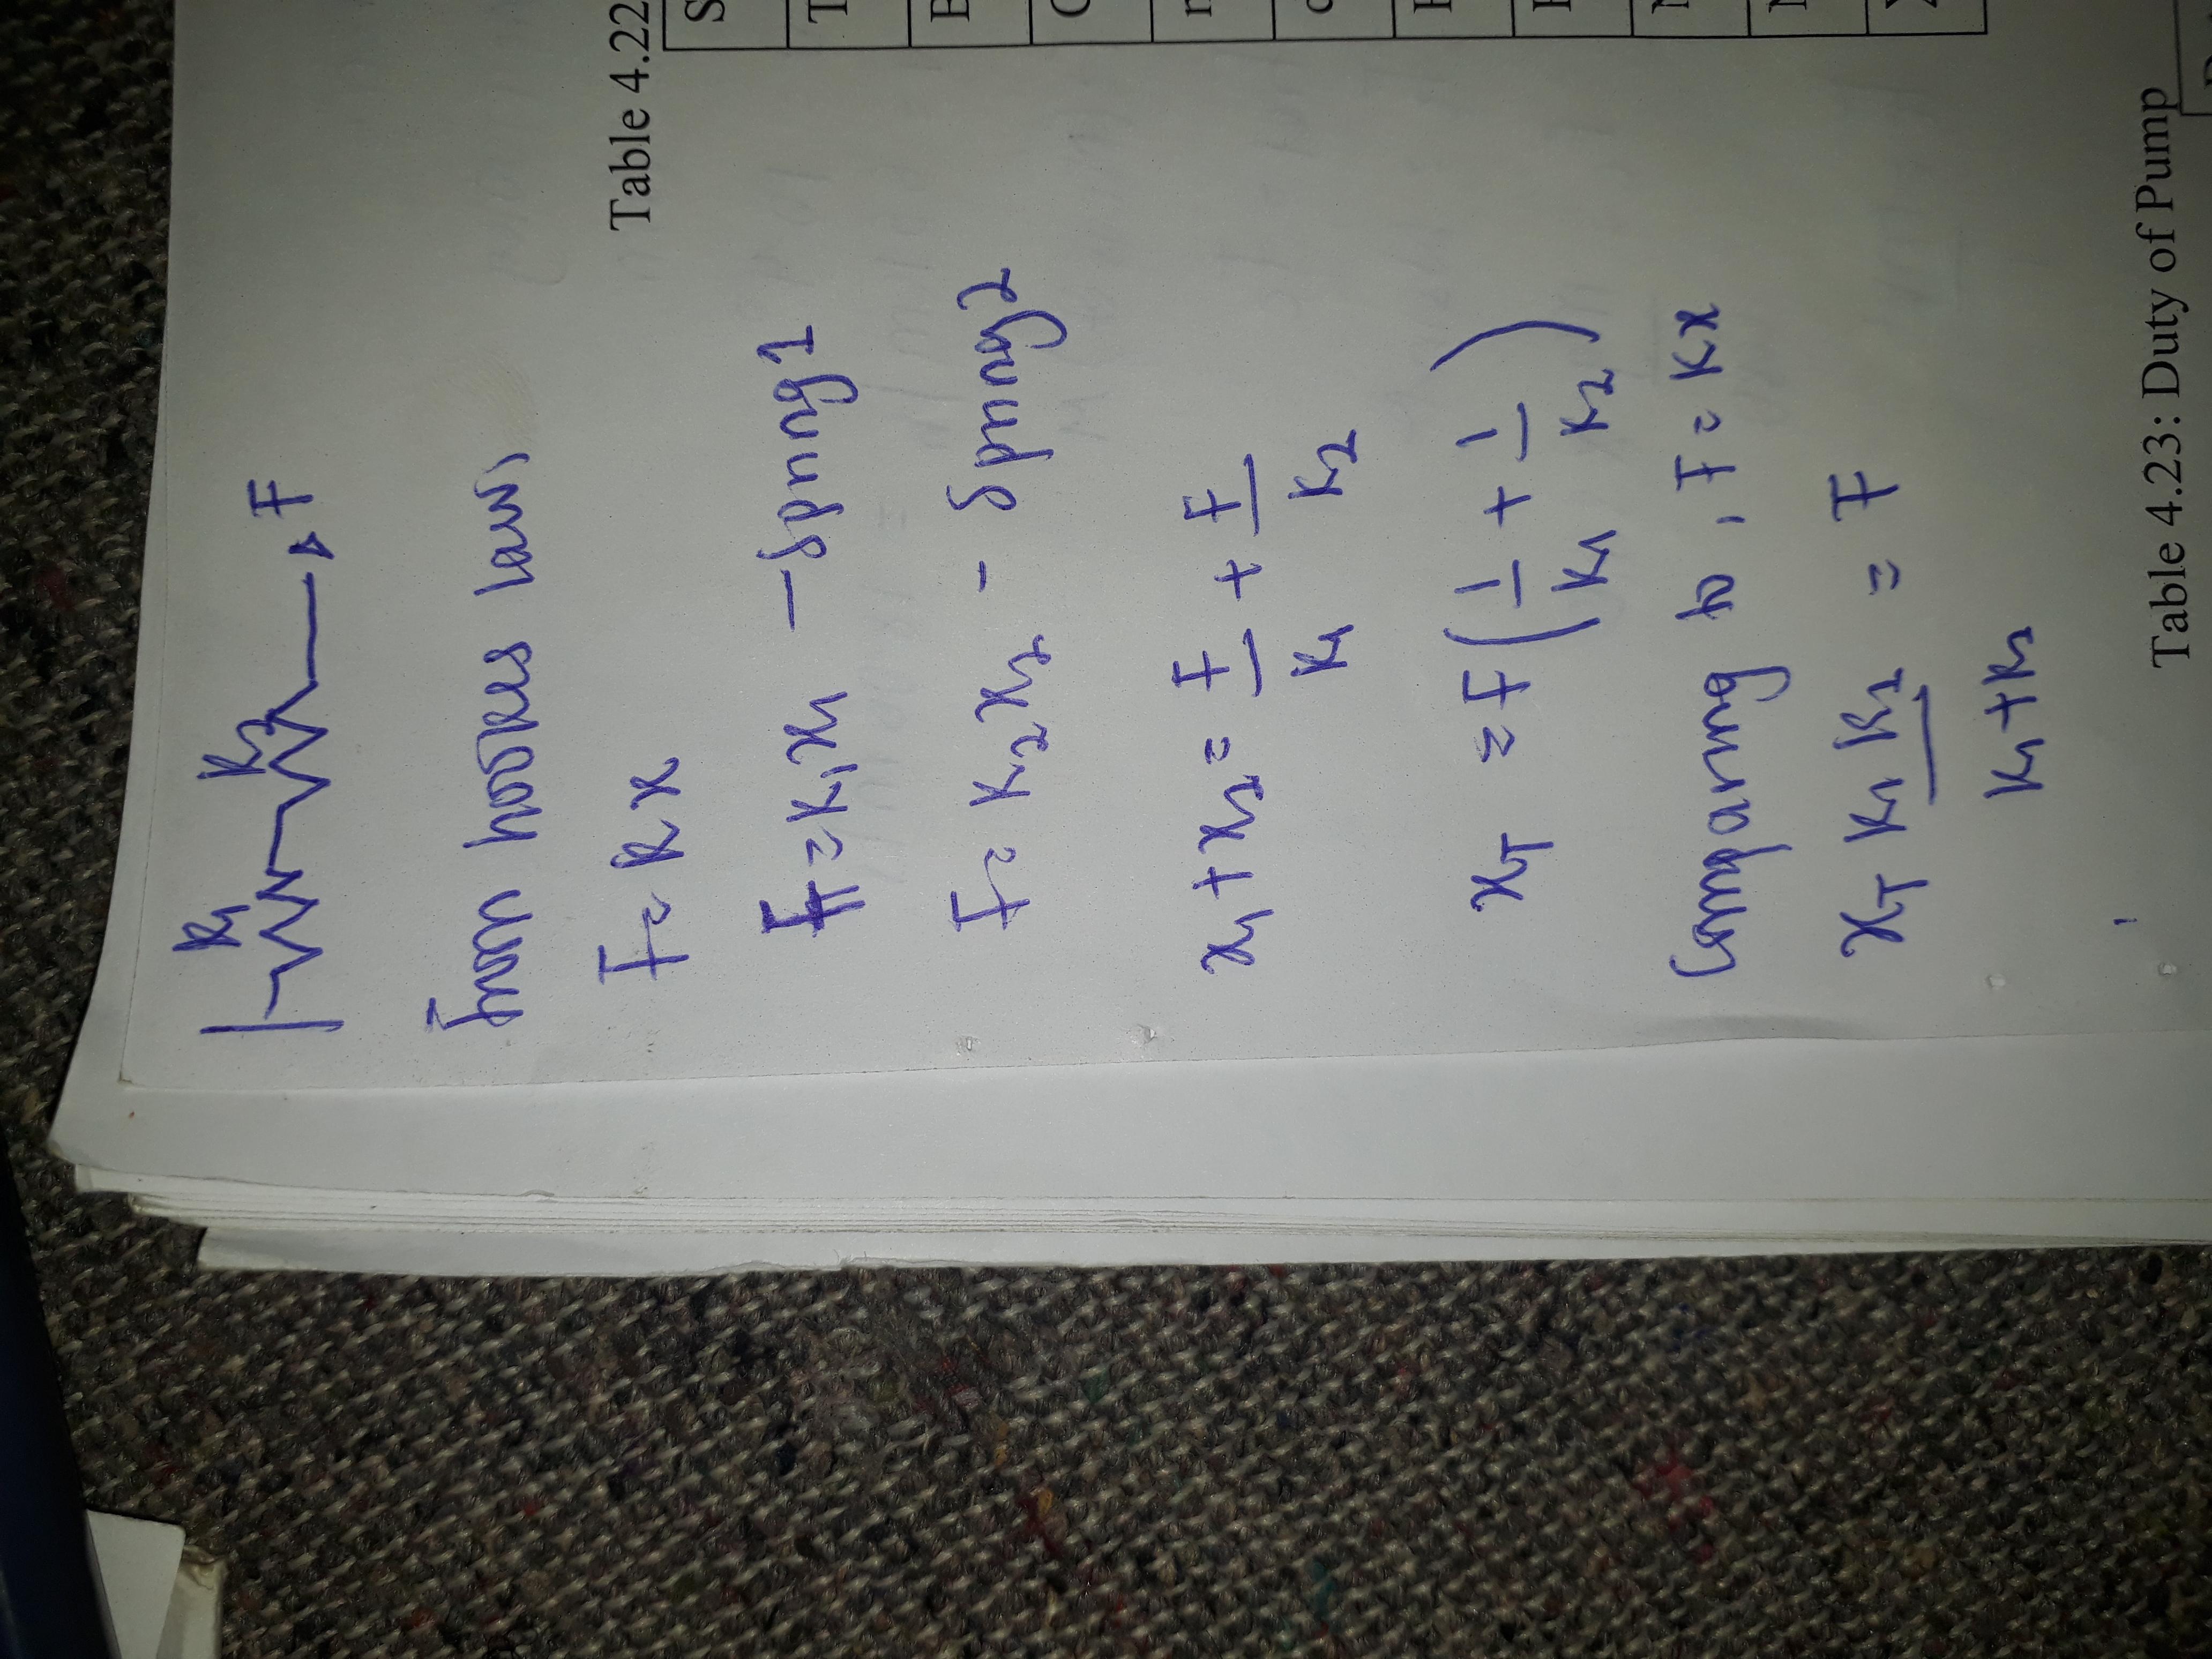 K1 K2
F
From hookes law,
F = K x
F = K1x1 - Spring 1
F = K2x2 - Spring 2
x1 + x2 = F/K1 + F/K2
xT = F(1/K1 + 1/K2)
Comparing to, F = Kx
xT K1K2/K1+K2 = F
Table 4.22
S
T
E
C
Table 4.23: Duty of Pump